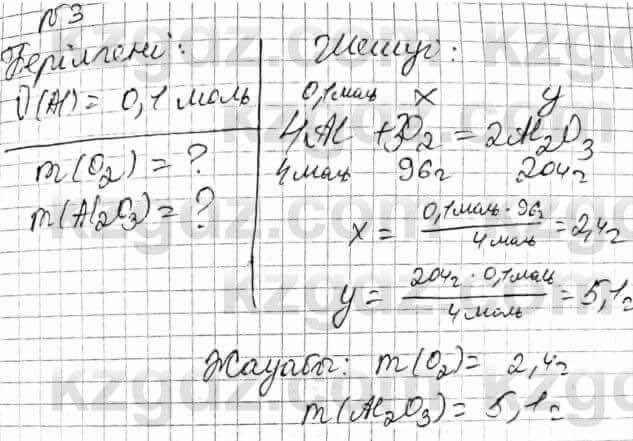 №3
Берілгені:
υ(Al) = 0,1 моль
m(O₂) = ?
m(Al₂O₃) = ?
Шешуі:
0,1 моль x y
4Al + 3O₂ = 2Al₂O₃
4 моль 96г 204г
x = 0,1 моль · 96г / 4 моль = 2,4г
y = 204г · 0,1 моль / 4 моль = 5,1г
Жауабы: m(O₂) = 2,4г
m(Al₂O₃) = 5,1г
kzgdz.com